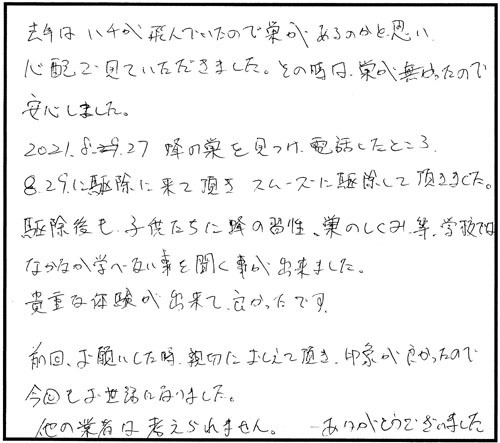 去年はハチが飛んでいたので巣があるのかと思い
心配で見ていただきました。その時は、巣が無かったので
安心しました。
2021.8.27 蜂の巣を見つけ、電話したところ、
8.29.に駆除に来て頂き スムーズに駆除して頂きました。
駆除後も、子供たちに蜂の習性、巣のしくみ、等、学校では
なかなか学べない事を聞く事が出来ました。
貴重な体験が出来て、良かったです。
前回、お願いした時、親切におしえて頂き、印象が良かったので
今回もお世話になりました。
他の業者は考えられません。 ーありがとうございました